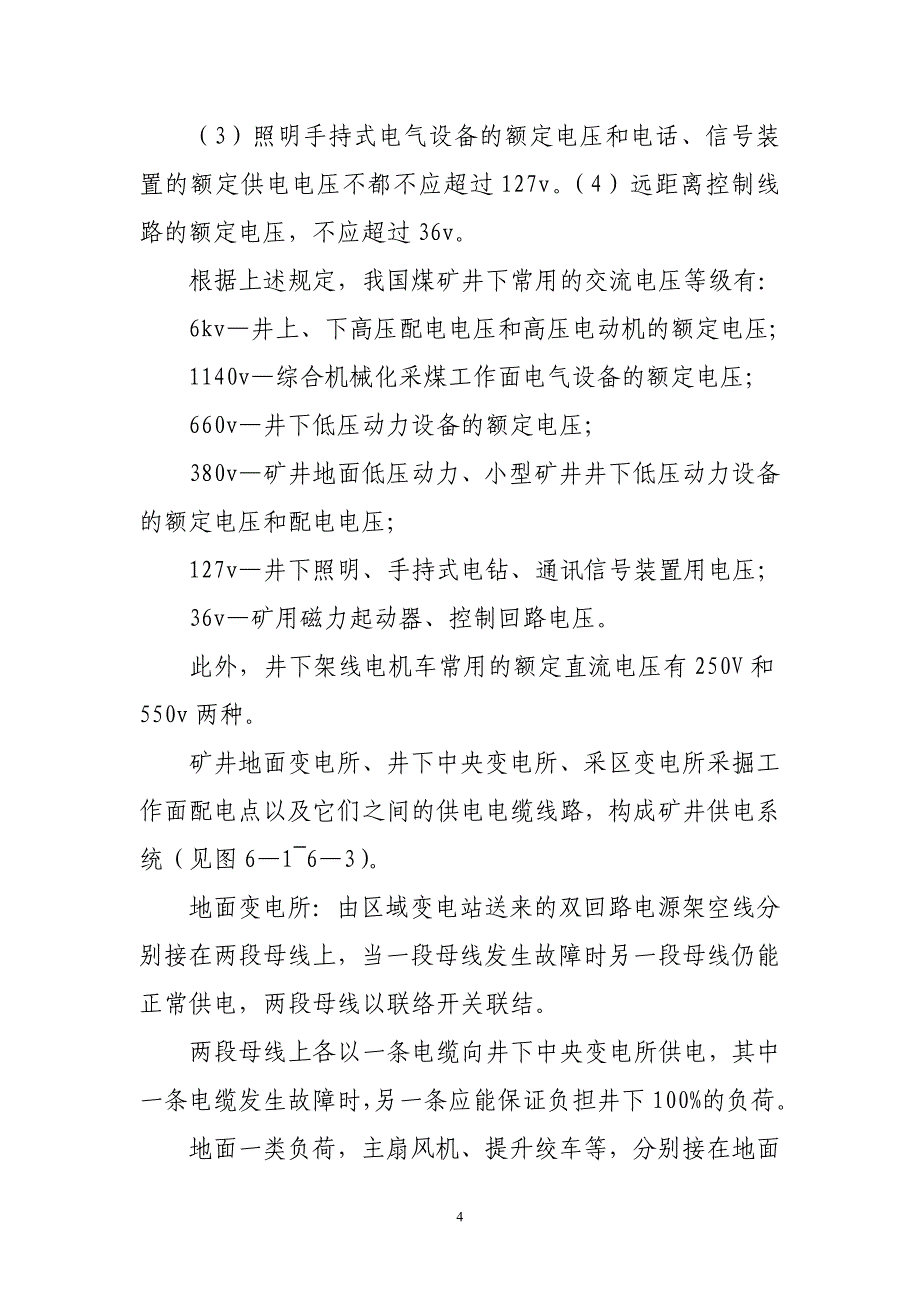 （3）照明手持式电气设备的额定电压和电话、信号装
置的额定供电电压不都不应超过 127v。（4）远距离控制线
路的额定电压，不应超过 36v。
根据上述规定，我国煤矿井下常用的交流电压等级有：
6kv—井上、下高压配电电压和高压电动机的额定电压；
1140v—综合机械化采煤工作面电气设备的额定电压；
660v—井下低压动力设备的额定电压；
380v—矿井地面低压动力、小型矿井井下低压动力设备
的额定电压和配电电压；
127v—井下照明、手持式电钻、通讯信号装置用电压；
36v—矿用磁力起动器、控制回路电压。
此外，井下架线电机车常用的额定直流电压有 250V 和
550v 两种。
矿井地面变电所、井下中央变电所、采区变电所采掘工
作面配电点以及它们之间的供电电缆线路，构成矿井供电系
统（见图 6—1¯6—3）。
地面变电所：由区域变电站送来的双回路电源架空线分
别接在两段母线上，当一段母线发生故障时另一段母线仍能
正常供电，两段母线以联络开关联结。
两段母线上各以一条电缆向井下中央变电所供电，其中
一条电缆发生故障时，另一条应能保证负担井下 100%的负荷。
地面一类负荷，主扇风机、提升绞车等，分别接在地面
4